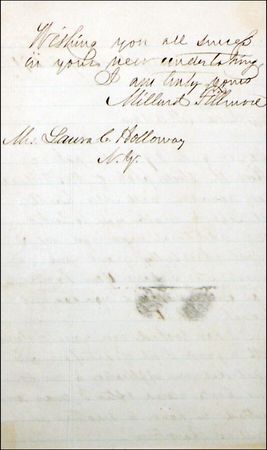 Wishing you all success
in your new undertaking
I am truly yours
Millard Fillmore
Mrs. Laura C. Holloway
N.Y.